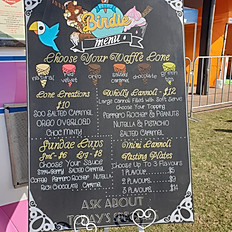 Birdie
menu
Choose Your Waffle Cone
original
red velvet
oreo
salted caramel
chocolate
green
Cone Creations
$10
Salted Caramel
Oreo Overload
Choc Mint
Wholly Cannoli - $12
Large Cannoli Filled with Soft Serve
Choose Your Topping
Ferrero Rocher & Peanuts
Nutella & Pistachio
Salted Caramel
Sundae Cups
Sml - $6 Lrg - $8
Choose Your Sauce
Strawberry Salted Caramel
Coffee Ferrero Rocher Nutella
Rich Chocolate Caramel
Mini Cannoli
Tasting Plates
Choose Up To 3 Flavours
1 Flavour
2 Flavours
3 Flavours $14
Ask About